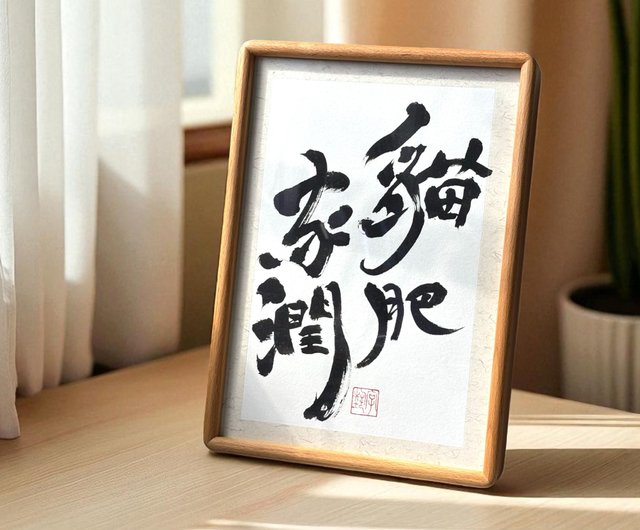 貓肥
家潤